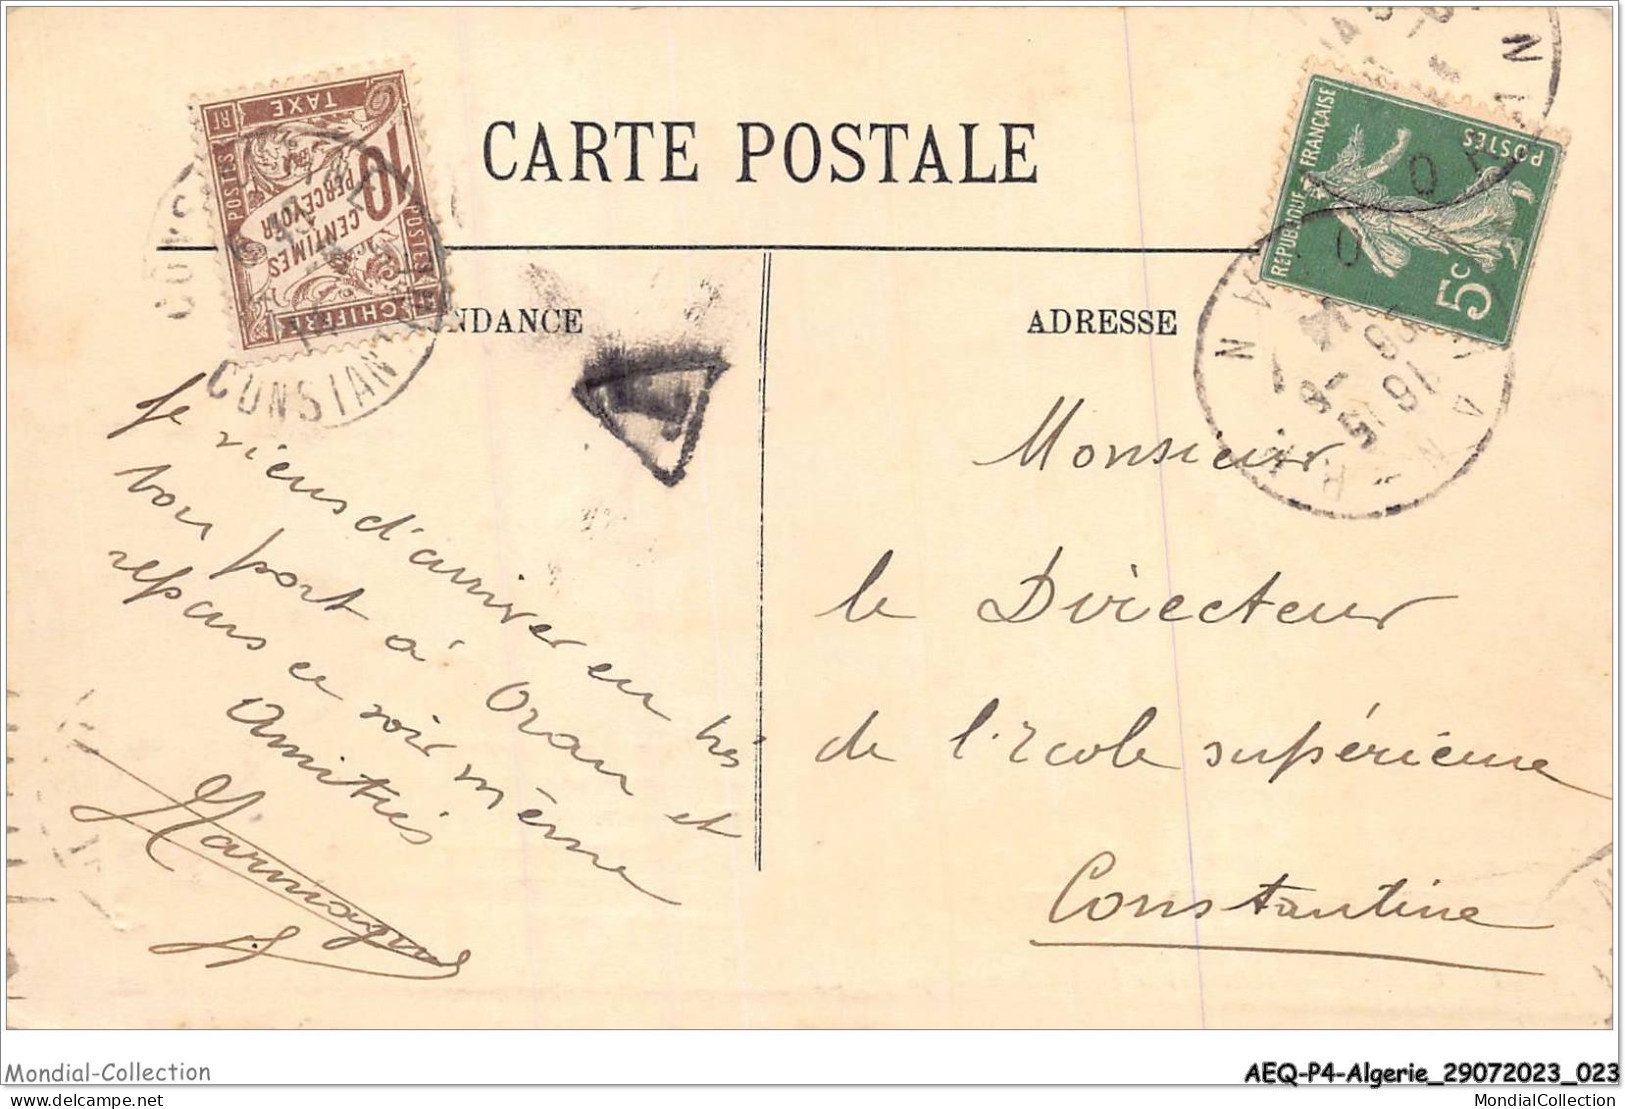 CARTE POSTALE
NDANCE
ADRESSE
TAXE
RF
POSTES
POSTES
10
CENTIMES
PERCEVOIR
CHIFFRE
CONSTAN
REPUBLIQUE FRANÇAISE
POSTES
5c
Je viens d'arriver en très
bon port à Oran et
repars ce soir même
Amitiés
Monsieur
le Directeur
de l'Ecole supérieure
Constantine
Mondial-Collection
AEQ-P4-Algerie_29072023_023
delcampe.net
MondialCollection